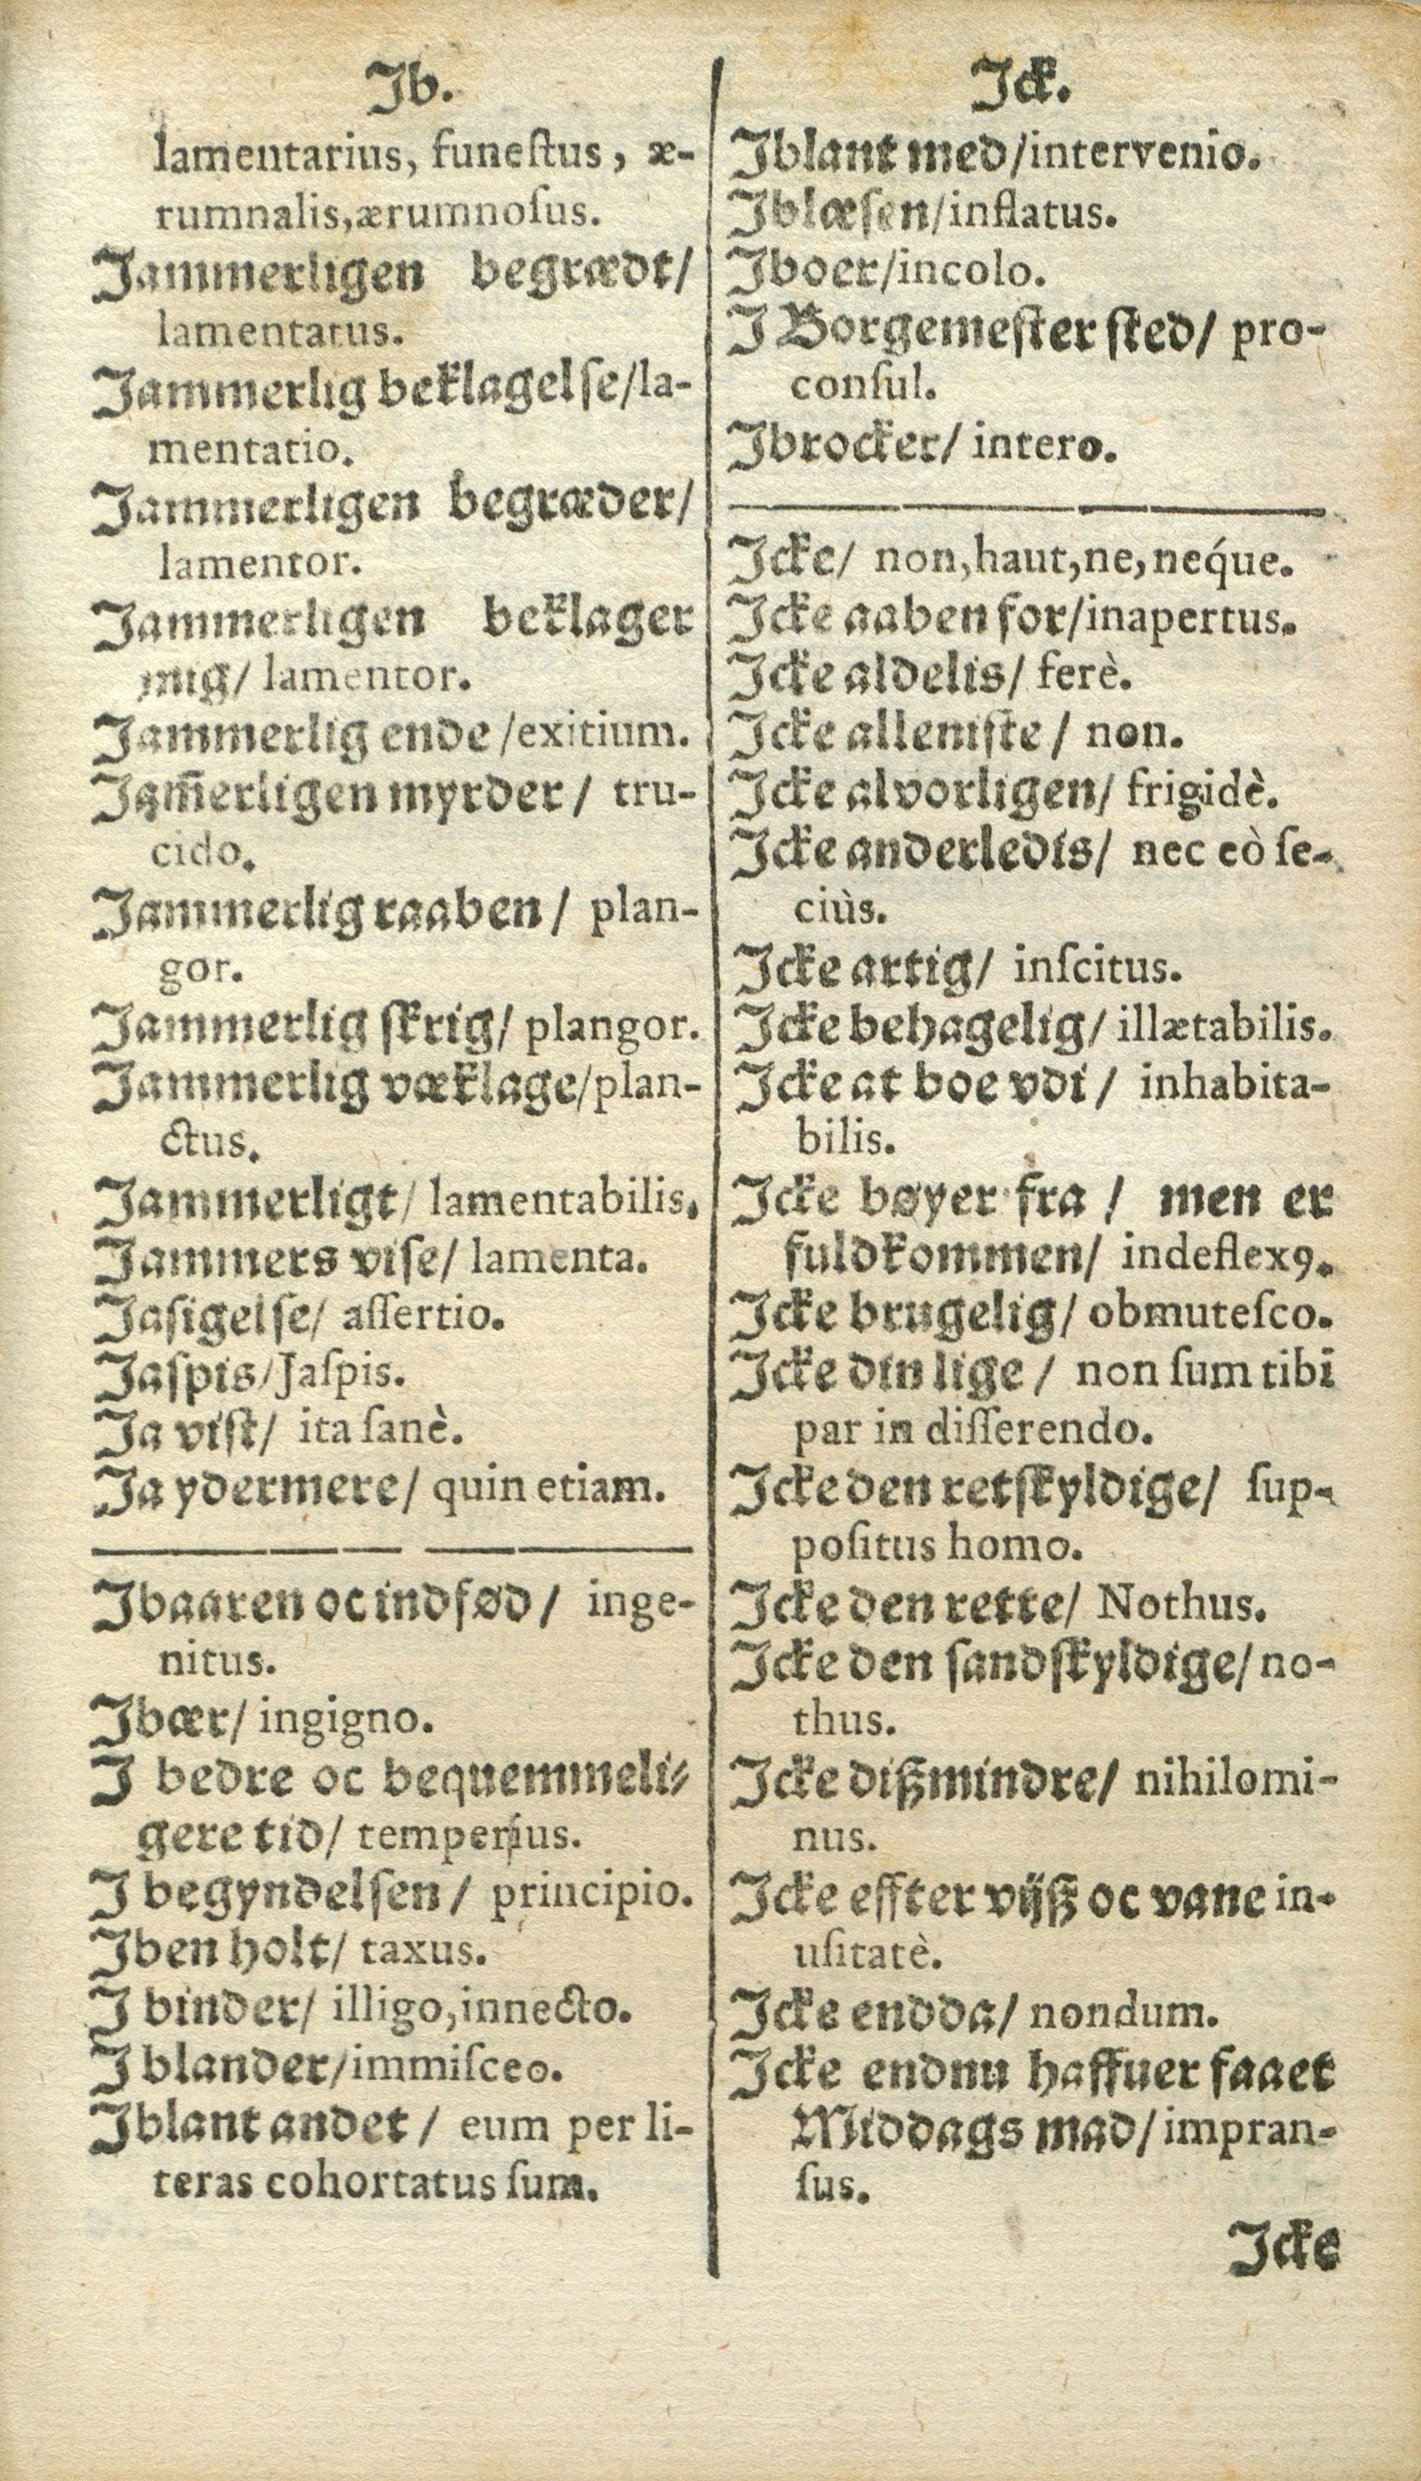 Jb.
lamentarius, funeſtus, æ-
rumnalis, ærumnoſus.
Jammerligen begrædt/
lamentatus.
Jammerlig beklagelſe/la-
mentatio.
Jammerligen begræder/
lamentor.
Jammerligen beklager
mig/ lamentor.
Jammerlig ende/exitium.
Jam̃erligen myrder/ tru-
cido.
Jammerlig raaben/ plan-
gor.
Jammerlig ſkrig/ plangor.
Jammerlig væklage/plan-
ctus.
Jammerligt/ lamentabilis.
Jammers viſe/ lamenta.
Jaſigelſe/ aſſertio.
Jaſpis/Jaſpis.
Ja viſt/ ita ſanè.
Ja ydermere/ quin etiam.
Jbaaren oc indfød/ inge-
nitus.
Jbær/ ingigno.
J bedre oc bequemmeli⸗
gere tid/ temperius.
J begyndelſen/ principio.
Jben holt/ taxus.
J binder/ illigo, innecto.
J blander/immiſceo.
Jblant andet/ eum per li-
teras cohortatus ſum.
Jck.
Jblant med/intervenio.
Jblæſen/inflatus.
Jboer/incolo.
J Borgemeſter ſted/ pro-
conſul.
Jbrocker/ intero.
Jcke/ non, haut, ne, neq́ue.
Jcke aaben for/inapertus.
Jcke aldelis/ ferè.
Jcke alleniſte/ non.
Jcke alvorligen/ frigidè.
Jcke anderledis/ nec eò ſe-
ciùs.
Jcke artig/ inſcitus.
Jcke behagelig/ illætabilis.
Jcke at boe vdi/ inhabita-
bilis.
Jcke bøyer fra/ men er
fuldkommen/ indeflexꝯ.
Jcke brugelig/ obmuteſco.
Jcke din lige/ non ſum tibi
par in diſſerendo.
Jcke den retſkyldige/ ſup-
poſitus homo.
Jcke den rette/ Nothus.
Jcke den ſandſkyldige/ no-
thus.
Jcke dißmindre/ nihilomi-
nus.
Jcke effter vijß oc vane in-
uſitatè.
Jcke endda/ nondum.
Jcke endnu haffuer faaet
Middags mad/ impran-
ſus.
Jcke